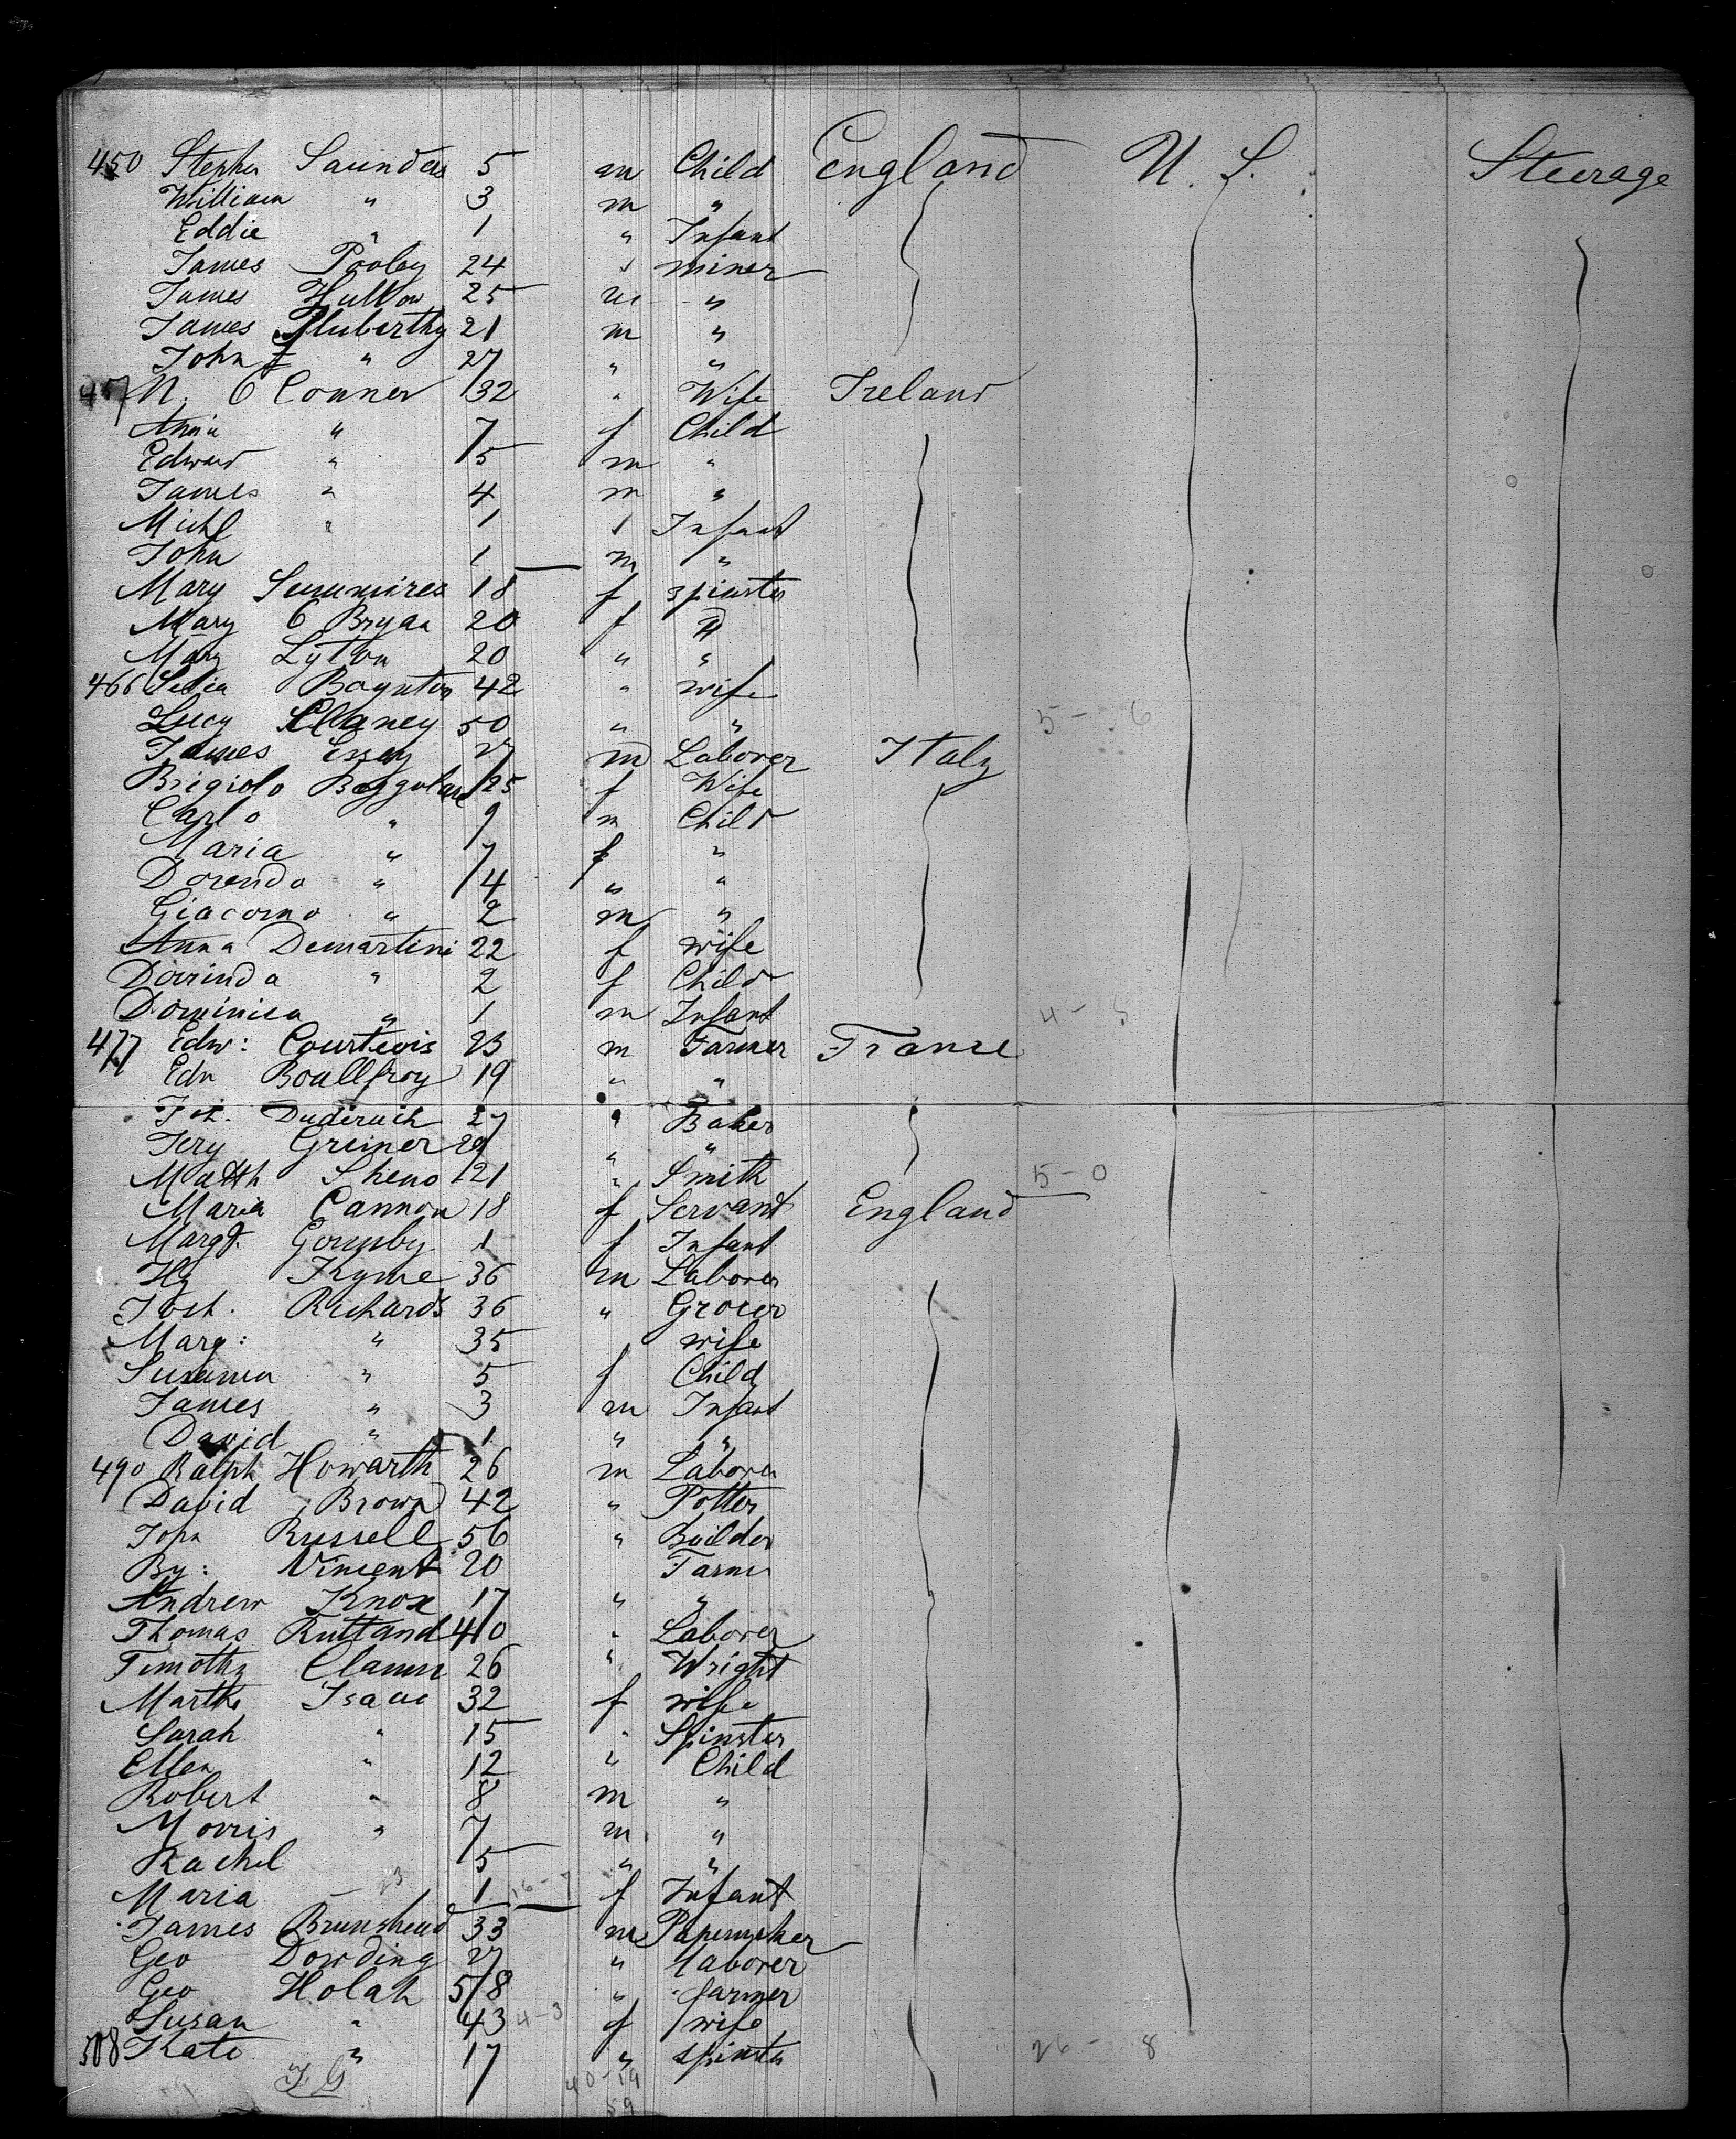 450 Stephen Saunders 5 m Child England U. S. Steerage
William " 3 m "
Eddie " 1 " Infant
James Pooley 24 " miner
James Hutton 25 m "
James Fluberthy 21 m "
John F " 27 " "
457 N. O Conner 32 " Wife Ireland
Annie " 7 f Child
Edward " 5 m "
James " 4 m "
Michl " 1 " Infant
John 1 m "
Mary 18 f spinster
Mary O Bryan 20 f "
Mary Lyton 20 " "
466 Selia Boynton 42 " wife
Lucy Claney 50 " " 5 - 6
James 27 m Laborer Italy
Brigiolo 25 f Wife
Carlo " 9 m Child
Maria " 7 f "
Dorenda " 4 " "
Giacomo " 2 m "
Anna Demartini 22 f wife
Dorinda " 2 f Child
Dominica " 1 m Infant 4 - 5
477 Edw: Courtevis 23 m Farmer France
Edw Boullfroy 19 " "
Duderuich 27 " Baker
Jery Greiner 29 " "
Matth Sheno 21 " Smith 5 - 0
Maria Cannon 18 f Servant England
Margt. Gormby 1 f Infant
Hy Kyme 36 m Laborer
Josh. Richards 36 " Grocer
Marg: " 35 wife
Susanna " 5 f Child
James " 3 m Infant
David " 1 " "
490 Ralph Howarth 26 m Laborer
David Brown 42 " Potter
John Russell 56 " Builder
By: Vincent 20 Farmer
Andrew Knox 17 " "
Thomas Ruttand 40 " Laborer
Timothy Clamn 26 " Wright
Martha Isaac 32 f wife
Sarah " 15 " Spinster
Ellen " 12 " Child
Robert " 8 m "
Morris " 7 m "
Rachel 5 " "
Maria 1 16 - 7 f Infant
James Brunshead 33 m Papermaker
Geo Dowding 27 " laborer
Geo Holah 58 " farmer
Susan " 43 4 - 3 f wife
508 Kate " 17 " spinster 26 - 8
40 - 19
59